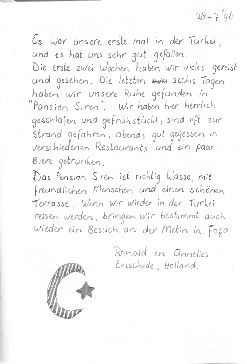 28-7-'96
Es war unsere erste mal in der Türkei,
und es hat uns sehr gut gefallen.
Die erste zwei Wochen haben wir vieles gereist
und gesehen. Die letzten sechs Tagen
haben wir unsere Ruhe gefunden in
"Pansion Siren". Wir haben her herrlich
geschlafen und gefrühstückt, sind oft zur
Strand gefahren, abends gut gegessen in
verschiedenen Restaurants und ein paar
Biere getrunken.
Das Pansion Siren ist richtig klasse, mit
freundlichen Menschen und einen schönen
Terrasse. Wenn wir wieder in der Türkei
reisen werden, bringen wir bestimmt auch
wieder ein Besuch an der Metin in Foça
Ronald en Annelies
Enschede, Holland.